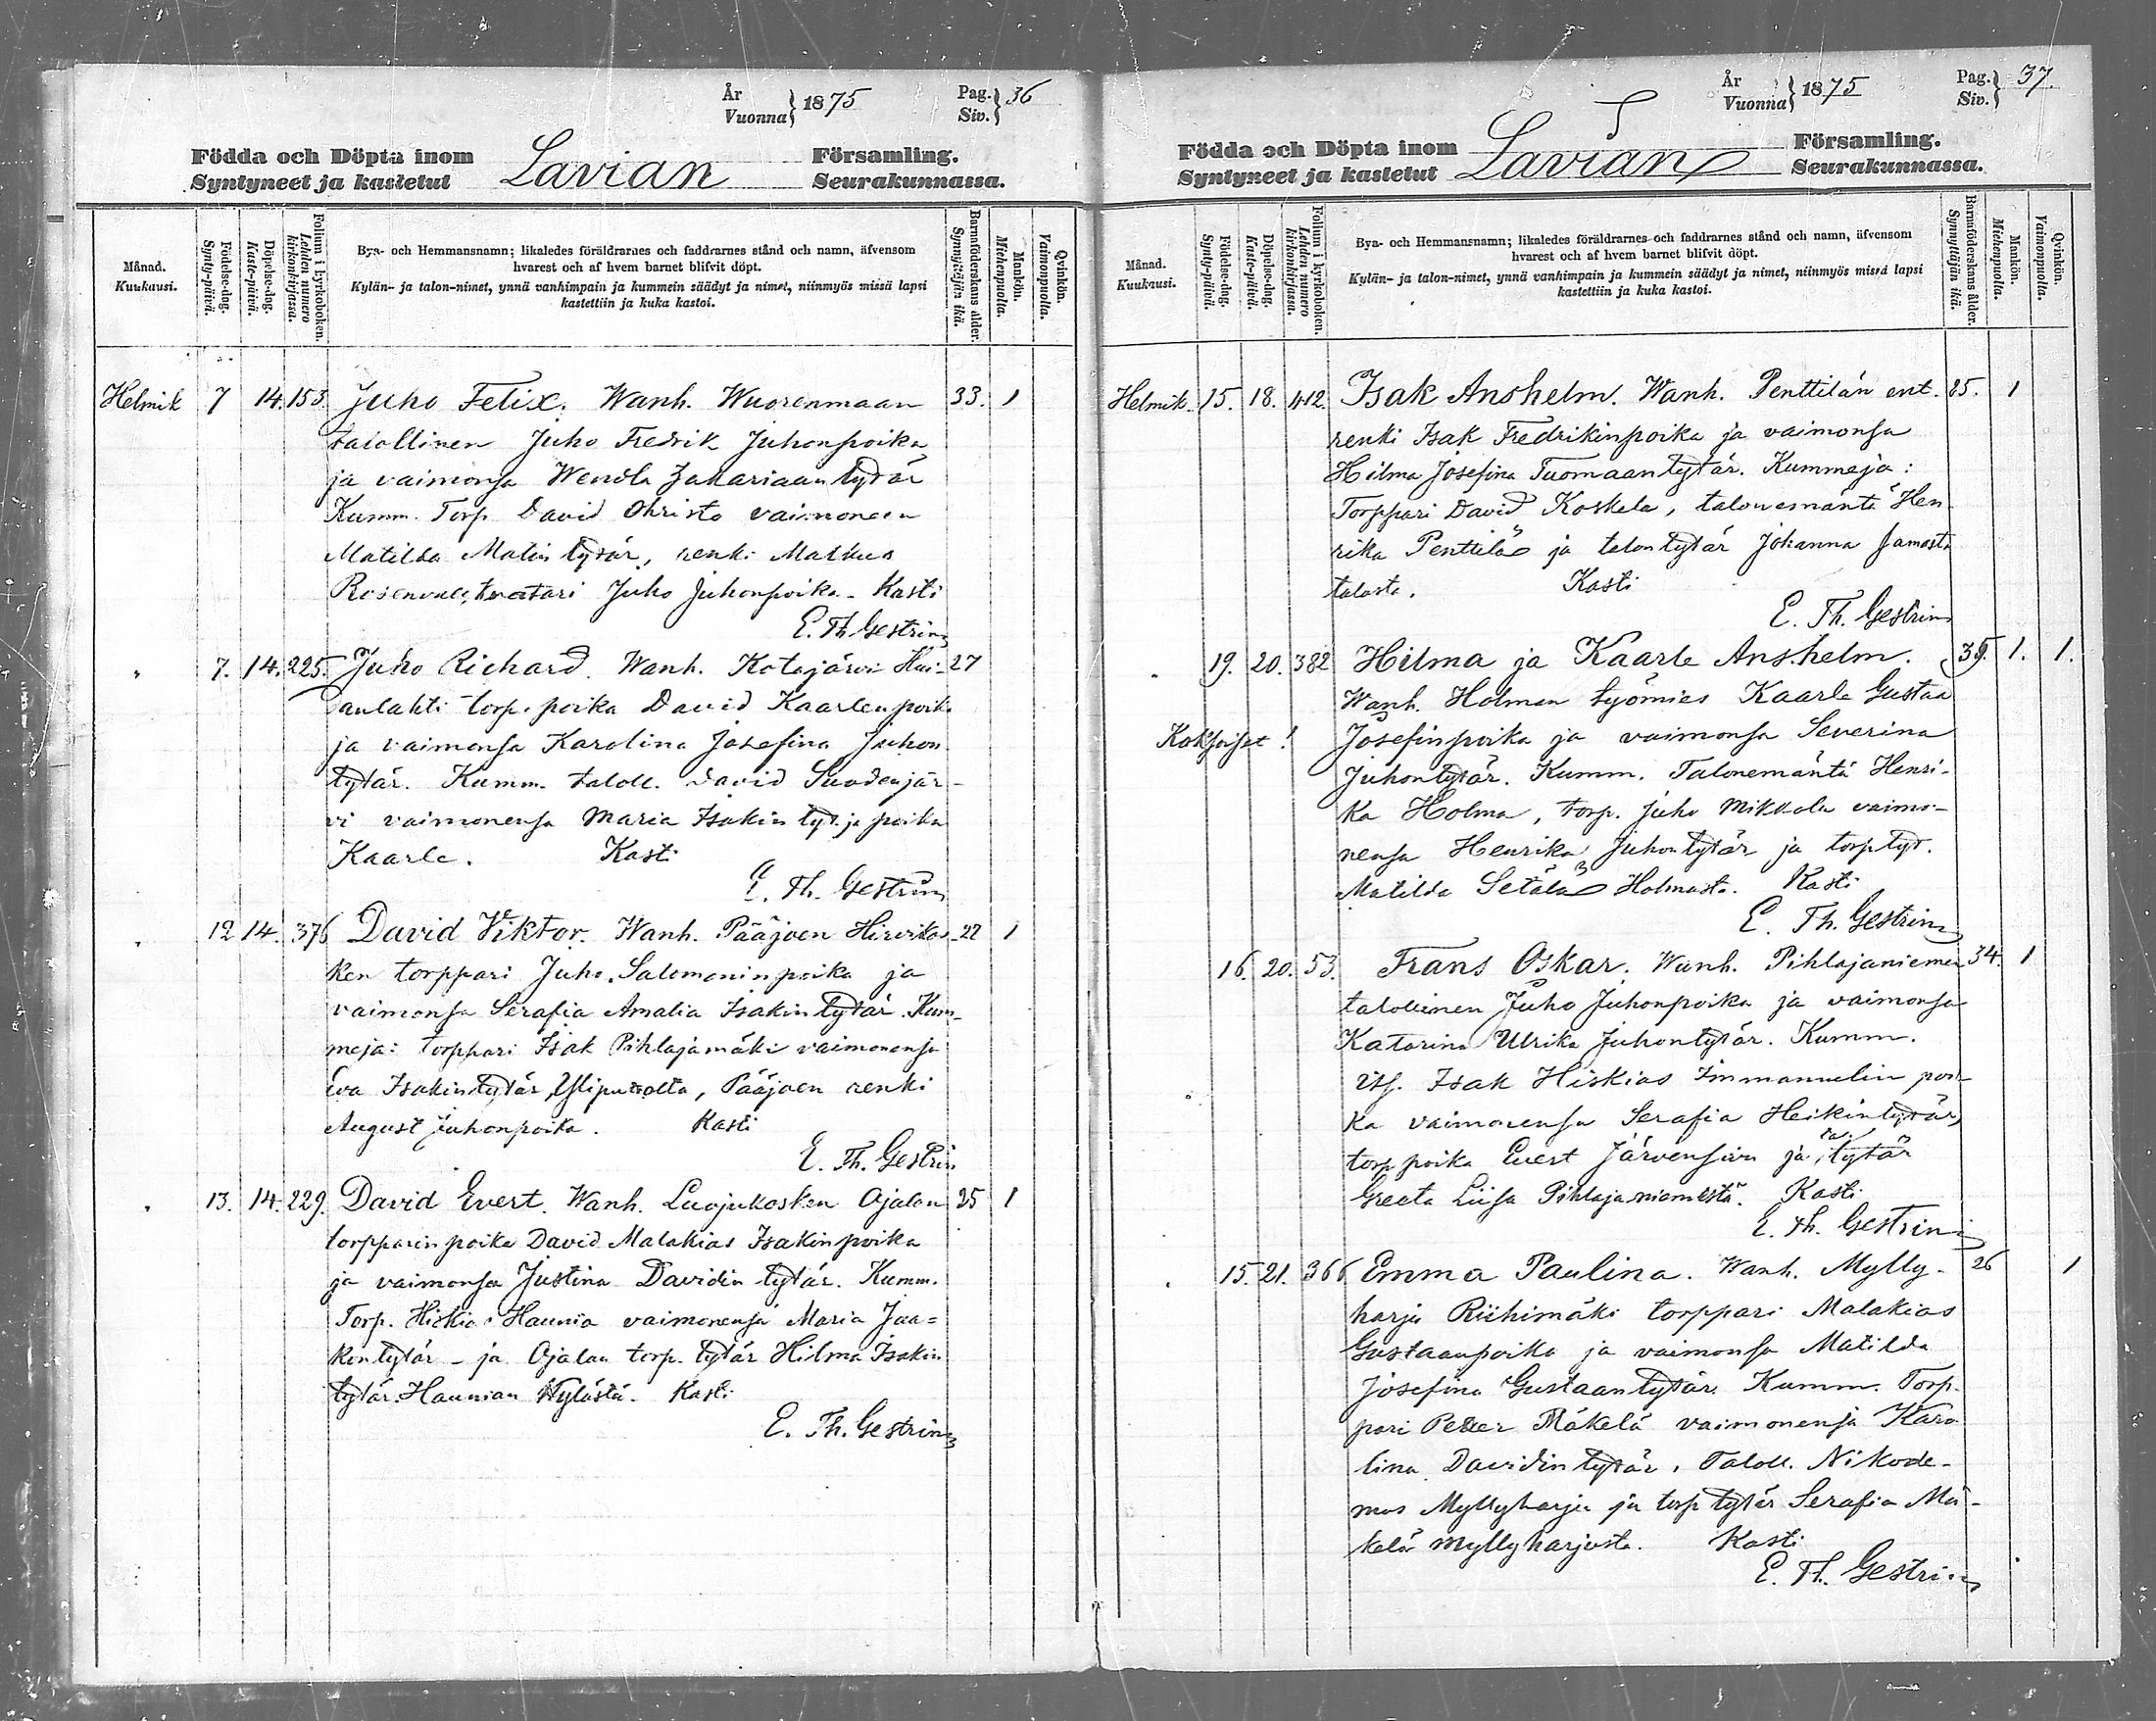 År
Vuonna} 1875
Pag.
Siv.} 36
Födda och Döpta inom
Syntyneet ja kastetut
Lavian
Församling.
Seurakunnassa.
Månad.
Kuukausi.
Födelse-dag.
Synty-päivä.
Döpelse-dag.
Kaste-päivä.
Folium i kyrkoboken.
Lehden numero
kirkonkirjassa.
Bya- och Hemmansnamn; likaledes föräldrarnes och faddrarnes stånd och namn, äfvensom
hvarest och af hvem barnet blifvit döpt.
Kylän- ja talon-nimet, ynnä vanhimpain ja kummein säädyt ja nimet, niinmyös missä lapsi
kastettiin ja kuka kastoi.
Barnaföderskans ålder.
Synnyttäjän ikä.
Mankön.
Miehenpuolia.
Qvinkön.
Vaimonpuolia.
Helmik 7 14. 153. Juho Felix. Wanh. Wuorenmaan 33. 1
talollinen Juho Fredrik Juhonpoika
ja vaimonsa Wendla Zakariaan tytär
Kumm. Torp. David Ohristo vaimoneen
Matilda Matin tytär, renki Matkus
Juho Juhonpoika - Kasti
E. Th Gestrin
" 7. 14. 225. Juho Richard. Wanh. Kotajärvi Hui- 27
daulahti torp. poika David Kaarlenpoika
ja vaimonsa Karolina Josefina Juhon
tytär. Kumm. taloll. David Suodenjär-
vi vaimonensa Maria Isakin tyt. ja poika
Kaarle. Kasti
E. Th. Gestrin
" 12 14. 376 David Viktor. Wanh. Pääjoen Hirvikos- 22 1
ken torppari Juho Salomoninpoika ja
vaimonsa Serafia Amalia Isakin tytär. Kum-
meja: torppari Isak Pihlajamäki vaimonensa
Eva Isakintytär, Pääjoen renki
August Juhonpoika. Kasti
E. Th. Gestrin
" 13. 14. 229. David Evert. Wanh. Luojukosken Ojalan 25 1
torpparin poika David Malakias Isakinpoika
ja vaimonsa Justina Davidin tytär. Kumm.
Torp. Hiskias Haunia vaimonensa Maria Jaa=
kontytär - ja Ojalan torp. tytär Hilma Isakin
tytär. Haunian Kylästä. Kasti
E. Th. Gestrin
År
Vuonna} 1875
Pag.
Siv.} 37.
Födda och Döpta inom
Syntyneet ja kastetut
Lavian
Församling.
Seurakunnassa.
Månad.
Kuukausi.
Födelse-dag.
Synty-päivä.
Döpelse-dag.
Kaste-päivä.
Folium i kyrkoboken.
Lehden numero
kirkonkirjassa.
Bya- och Hemmansnamn; likaledes föräldrarnes och faddrarnes stånd och namn, äfvensom
hvarest och af hvem barnet blifvit döpt.
Kylän- ja talon-nimet, ynnä vanhimpain ja kummein säädyt ja nimet, niinmyös missä lapsi
kastettiin ja kuka kastoi.
Barnaföderskans ålder.
Synnyttäjän ikä.
Mankön.
Miehenpuolia.
Qvinkön.
Vaimonpuolia.
Helmik. 15. 18. 412. Isak Anshelm. Wanh. Penttilän ent. 25. 1
renki Isak Fredrikinpoika ja vaimonsa
Hilma Josefina Tuomaantytär. Kummeja:
Torppari David Koskela, talonemäntä Hen-
rika Penttilä ja talontytär Johanna samasta
talosta. Kasti
E. Th. Gestrin
" 19. 20. 382 Hilma ja Kaarle Anshelm. 39. 1. 1.
Wanh. Holman työmies Kaarle Gustaa
Kaksoiset! Josefinpoika ja vaimonsa Severina
Juhontytär. Kumm. Talonemäntä Henri-
ka Holma, torp. Juho Mikkola vaimo-
nensa Henrika Juhontytär ja torp tyt.
Matilda Setälä Holmasta. Kasti
E. Th. Gestrin
16. 20. 53. Frans Oskar. Wanh. Pihlajaniemen 34. 1
talollinen Juho Juhonpoika ja vaimonsa
Katarina Ulrika Juhontytär. Kumm.
Its. Isak Hiskias Immanuelin poi-
ka vaimonensa Serafia Heikintytär,
torp poika Evert Järvensivu ja tal. tytär
Greeta Liisa Pihlajaniemestä. Kasti
E. Th. Gestrin
" 15. 21. 366 Emma Paulina. Wanh. Mylly- 26 1
harju Riihimäki torppari Malakias
Gustaanpoika ja vaimonsa Matilda
Josefina Gustaantytär. Kumm. Torp-
pari Petter Mäkelä vaimonensa Karo-
lina Davidin tytär, Taloll. Nikode-
mus Myllyharju ja torp tytär Serafia Mä-
kelä Myllyharjusta. Kasti
E. Th. Gestrin